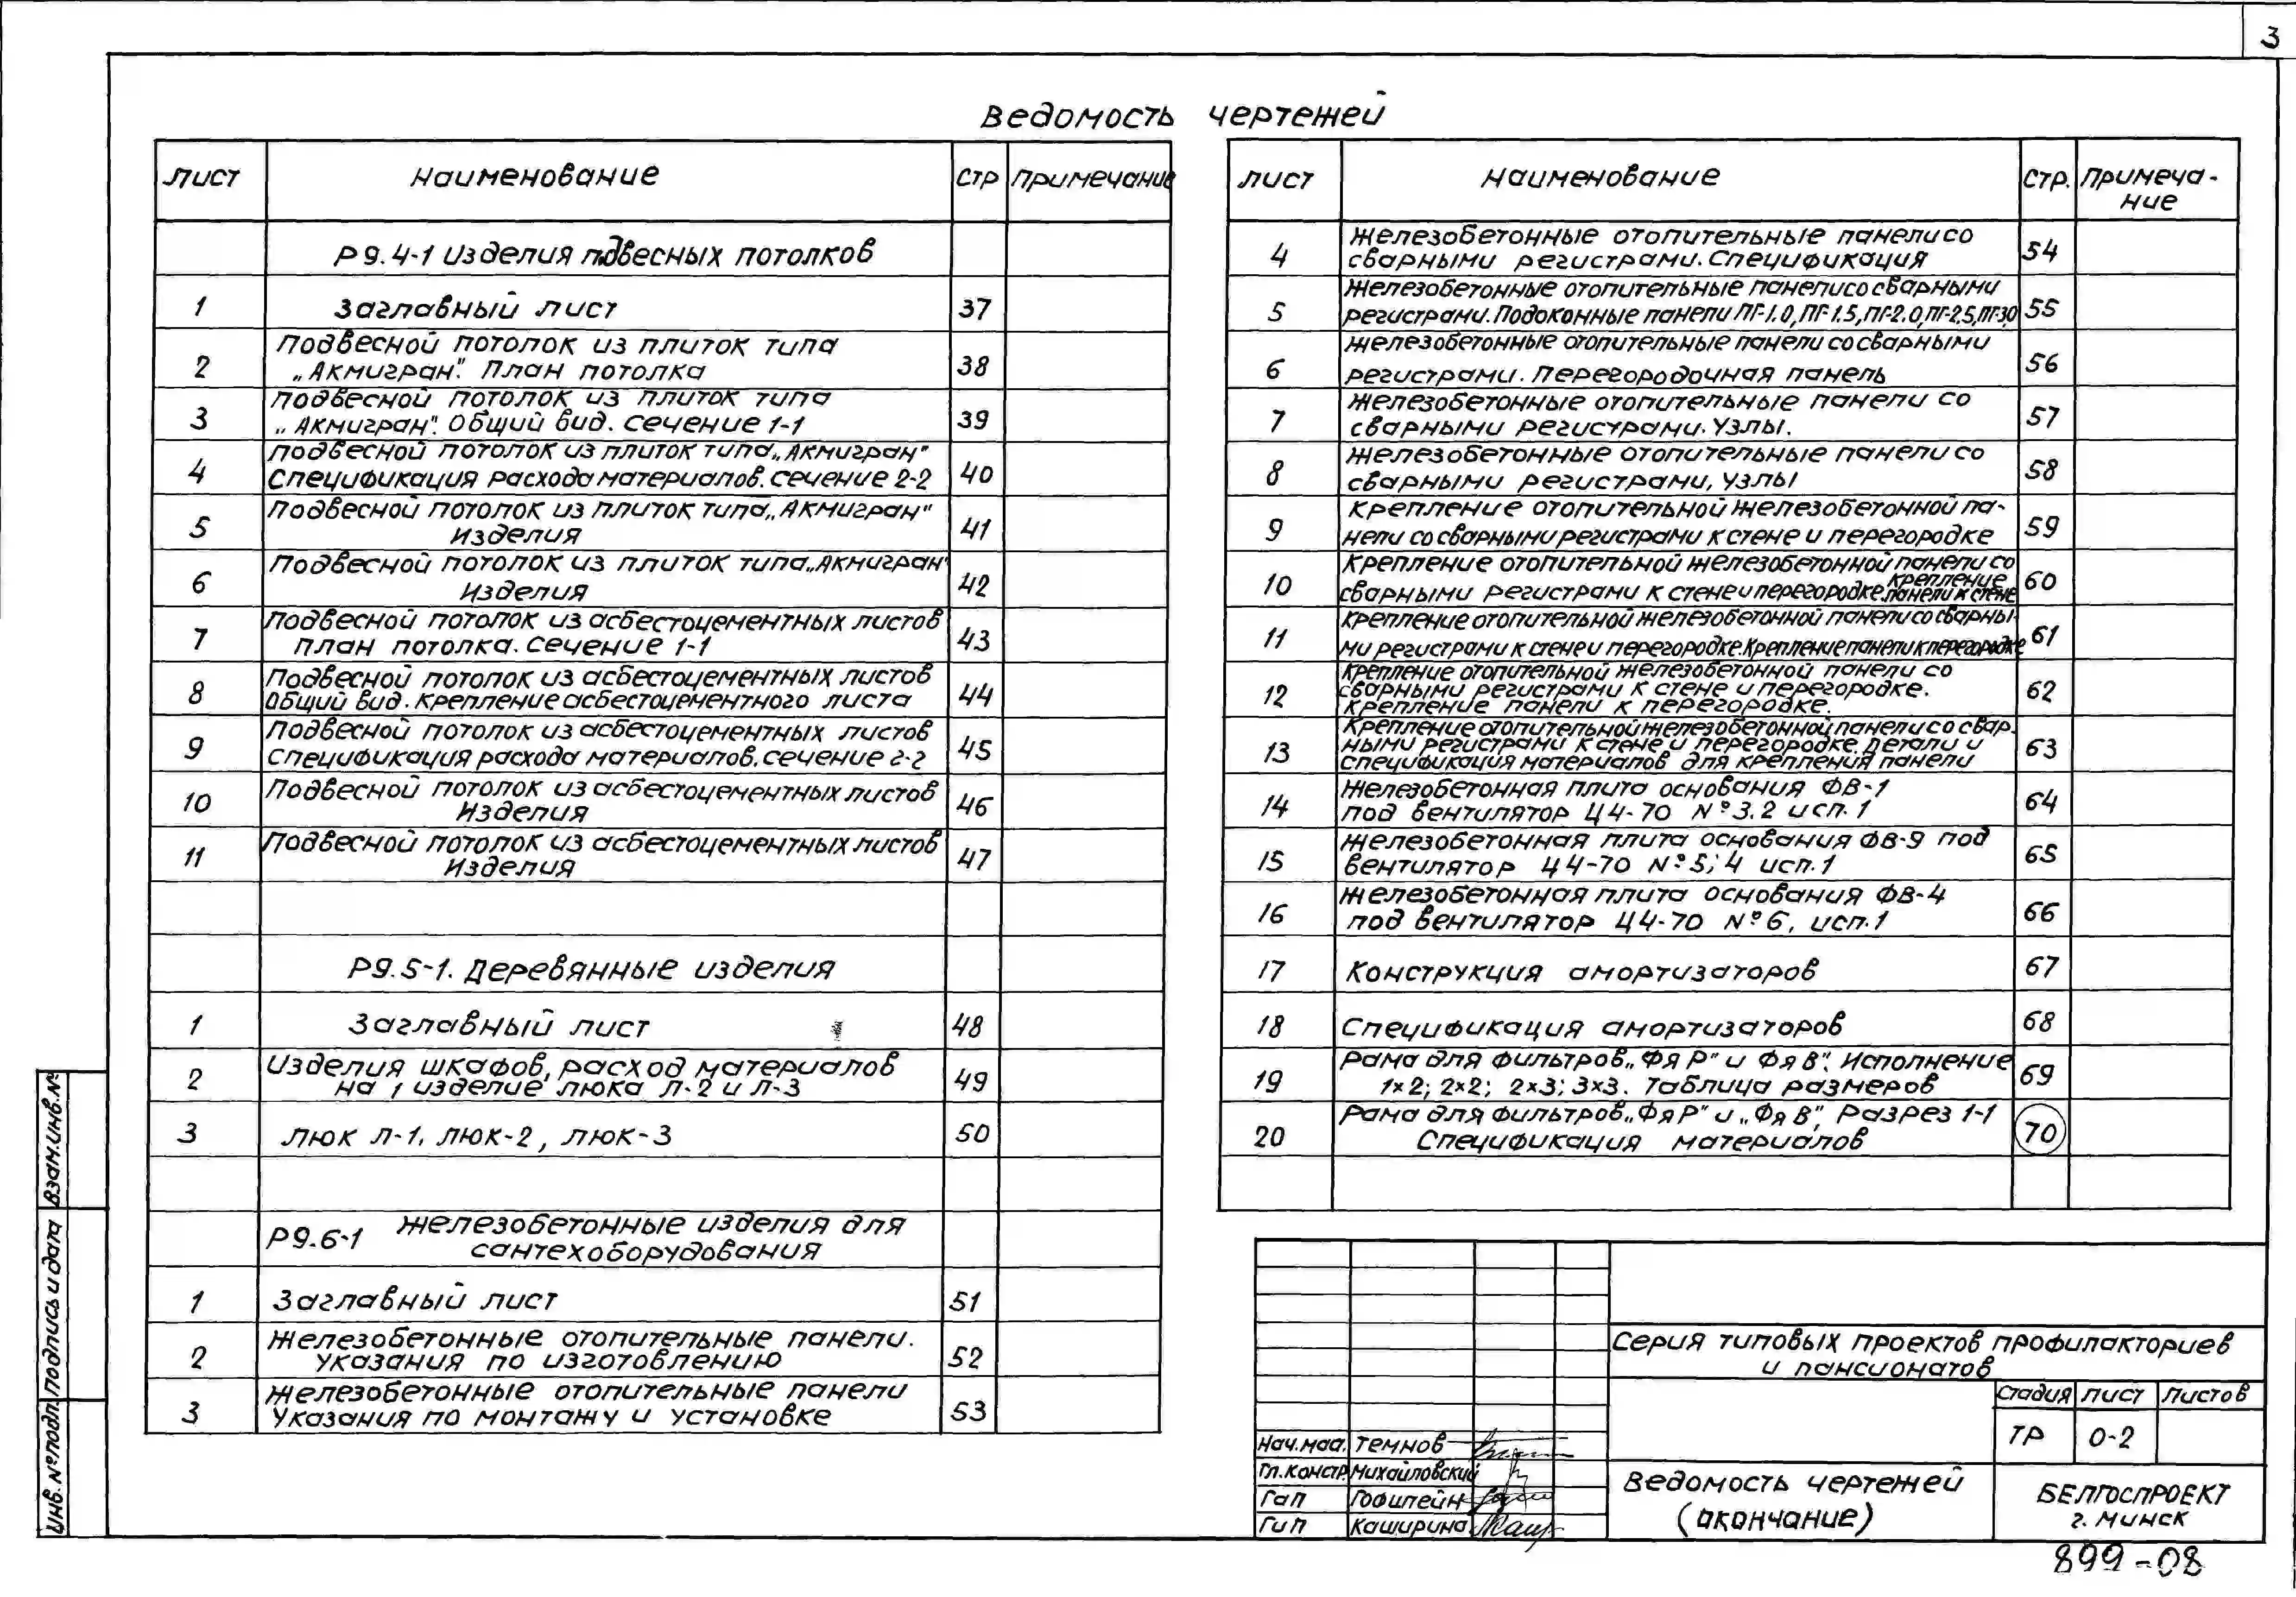 3
Ведомость чертежей
Лист Наименование Стр Примечание
Р9.4-1 Изделия подвесных потолков
1 Заглавный лист 37
2 Подвесной потолок из плиток типа
„Акмигран". План потолка 38
3 Подвесной потолок из плиток типа
„Акмигран". Общий вид. Сечение 1-1 39
4 Подвесной потолок из плиток типа „Акмигран"
Спецификация расхода материалов. Сечение 2-2 40
5 Подвесной потолок из плиток типа „Акмигран"
Изделия 41
6 Подвесной потолок из плиток типа „Акмигран"
Изделия 42
7 Подвесной потолок из асбестоцементных листов
план потолка. Сечение 1-1 43
8 Подвесной потолок из асбестоцементных листов
Общий вид. Крепление асбестоцементного листа 44
9 Подвесной потолок из асбестоцементных листов
Спецификация расхода материалов. Сечение 2-2 45
10 Подвесной потолок из асбестоцементных листов
Изделия 46
11 Подвесной потолок из асбестоцементных листов
Изделия 47
Р9.5-1. Деревянные изделия
1 Заглавный лист 48
2 Изделия шкафов, расход материалов
на 1 изделие люка Л-2 и Л-3 49
3 люк Л-1, люк-2, люк-3 50
Р9.6-1 Железобетонные изделия для
сантехоборудования
1 Заглавный лист 51
2 Железобетонные отопительные панели.
Указания по изготовлению 52
3 Железобетонные отопительные панели
Указания по монтажу и установке 53
Лист Наименование Стр. Примеча-
ние
4 Железобетонные отопительные панели со
сварными регистрами. Спецификация 54
5 Железобетонные отопительные панели со сварными
регистрами. Подоконные панели ПГ-1.0, ПГ-1.5, ПГ-2.0, ПГ-2.5, ПГ-3.0 55
6 Железобетонные отопительные панели со сварными
регистрами. Перегородочная панель 56
7 Железобетонные отопительные панели со
сварными регистрами. Узлы. 57
8 Железобетонные отопительные панели со
сварными регистрами, Узлы 58
9 Крепление отопительной железобетонной па-
нели со сварными регистрами к стене и перегородке 59
10 Крепление отопительной железобетонной панели со
сварными регистрами к стене и перегородке. Крепление панели к стене 60
11 Крепление отопительной железобетонной панели со сварны-
ми регистрами к стене и перегородке. Крепление панели к перегородке 61
12 Крепление отопительной железобетонной панели со
сварными регистрами к стене и перегородке.
Крепление панели к перегородке. 62
13 Крепление отопительной железобетонной панели со свар-
ными регистрами к стене и перегородке. Детали и
спецификация материалов для крепления панели 63
14 Железобетонная плита основания ФВ-1
под вентилятор Ц4-70 №3.2 исп. 1 64
15 Железобетонная плита основания ФВ-9 под
вентилятор Ц4-70 №5; 4 исп. 1 65
16 Железобетонная плита основания ФВ-4
под вентилятор Ц4-70 №6, исп. 1 66
17 Конструкция амортизаторов 67
18 Спецификация амортизаторов 68
19 Рама для фильтров „ФяР" и ФяВ". Исполнение
1×2; 2×2; 2×3; 3×3. Таблица размеров 69
20 Рама для фильтров „ФяР" и „ФяВ", Разрез 1-1
Спецификация материалов 70
Серия типовых проектов профилакториев
и пансионатов
Стадия Лист Листов
ТР 0-2
Нач.мас. Темнов
Гл.констр Михайловский
ГаП Гофштейн
ГиП Каширина
Ведомость чертежей
(окончание)
БЕЛГОСПРОЕКТ
г. Минск
899-08
Взам.инв.№
Подпись и дата
Инв.№подл.